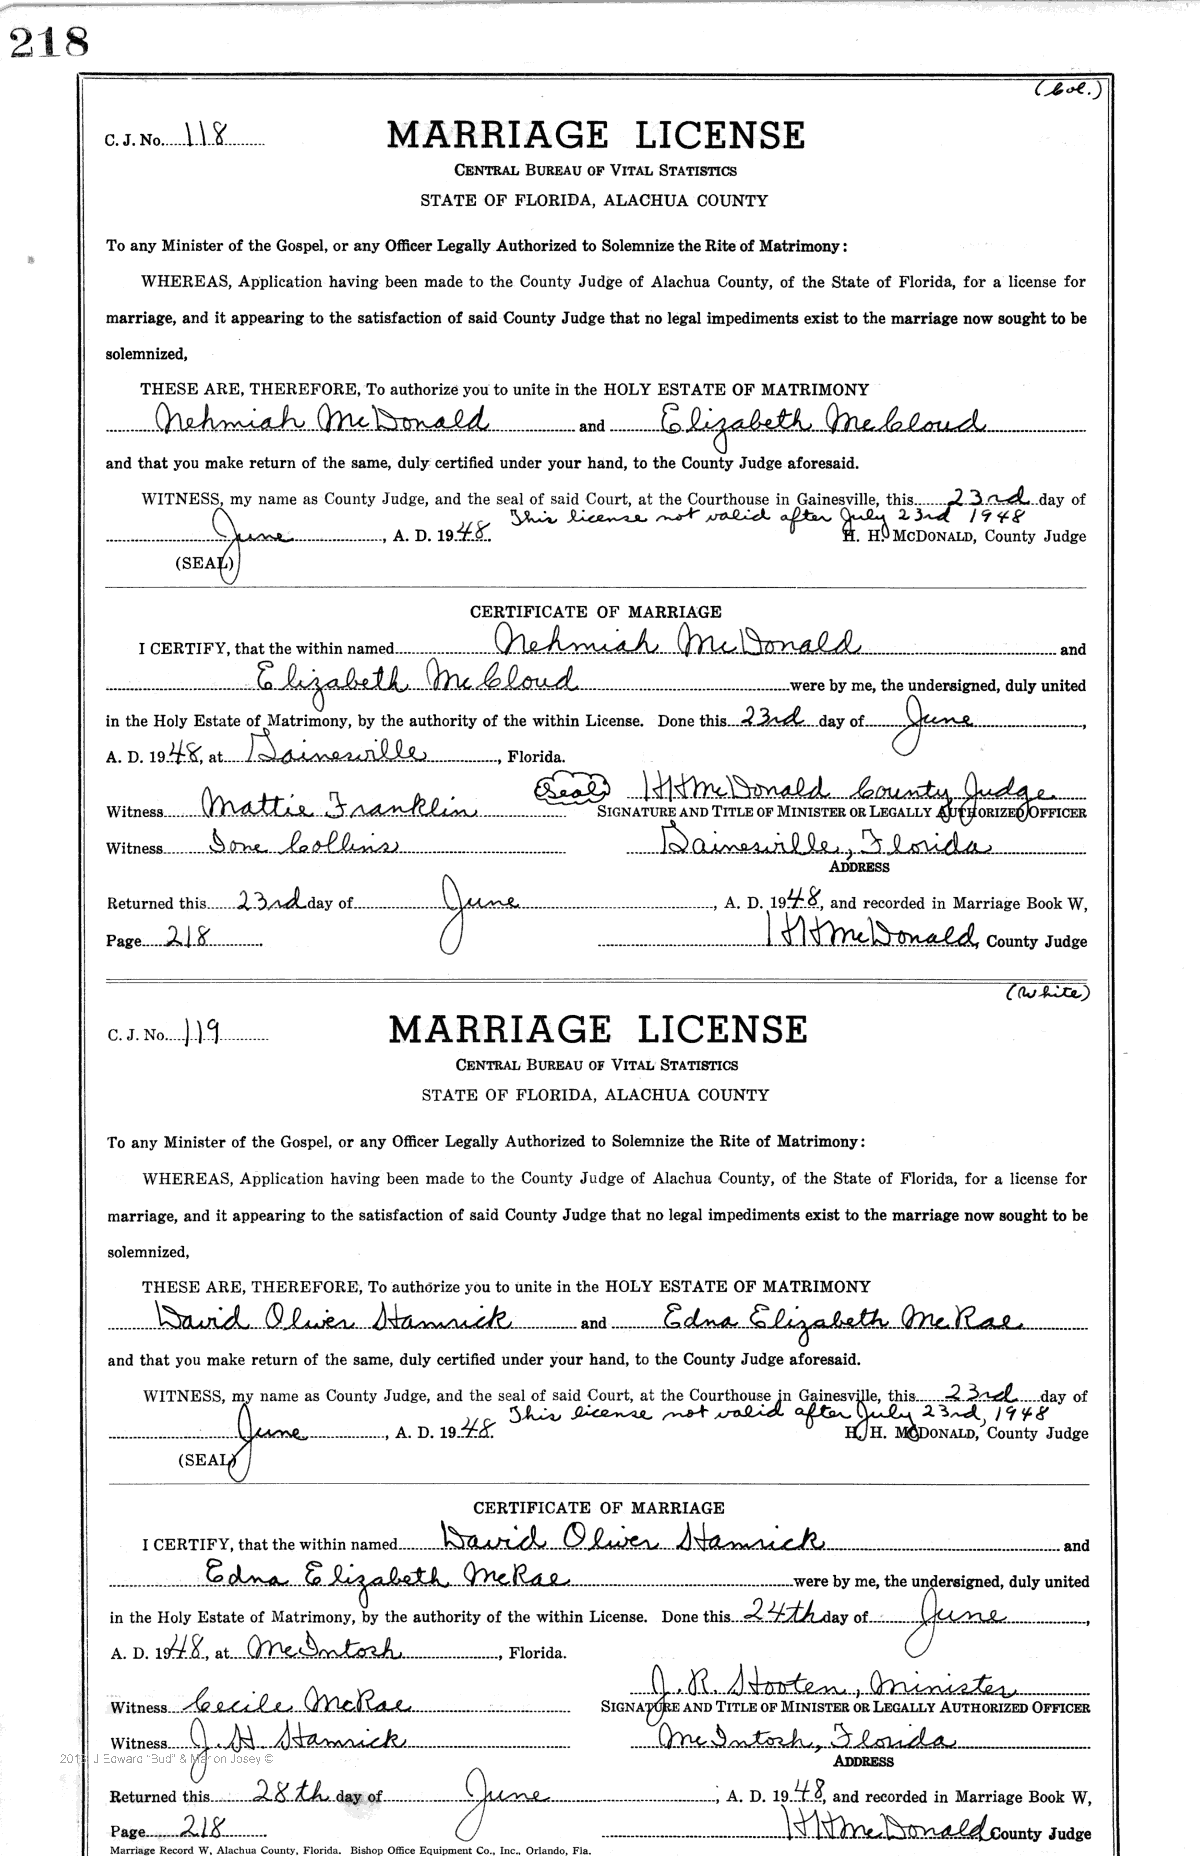 218
(Col.)
C. J. No. 118 MARRIAGE LICENSE
CENTRAL BUREAU OF VITAL STATISTICS
STATE OF FLORIDA, ALACHUA COUNTY
To any Minister of the Gospel, or any Officer Legally Authorized to Solemnize the Rite of Matrimony:
WHEREAS, Application having been made to the County Judge of Alachua County, of the State of Florida, for a license for
marriage, and it appearing to the satisfaction of said County Judge that no legal impediments exist to the marriage now sought to be
solemnized,
THESE ARE, THEREFORE, To authorize you to unite in the HOLY ESTATE OF MATRIMONY
Nehmiah McDonald and Elizabeth McCloud
and that you make return of the same, duly certified under your hand, to the County Judge aforesaid.
WITNESS, my name as County Judge, and the seal of said Court, at the Courthouse in Gainesville, this 23rd day of
This license not valid after July 23rd 1948
June, A. D. 1948. H. H. McDONALD, County Judge
(SEAL)
CERTIFICATE OF MARRIAGE
I CERTIFY, that the within named Nehmiah McDonald and
Elizabeth McCloud were by me, the undersigned, duly united
in the Holy Estate of Matrimony, by the authority of the within License. Done this 23rd day of June,
A. D. 1948, at Gainesville, Florida.
Seal HHMcDonald County Judge
Witness Mattie Franklin SIGNATURE AND TITLE OF MINISTER OR LEGALLY AUTHORIZED OFFICER
Witness Ione Collins Gainesville, Florida
ADDRESS
Returned this 23rd day of June, A. D. 1948, and recorded in Marriage Book W,
Page 218 HHMcDonald, County Judge
(White)
C. J. No. 119 MARRIAGE LICENSE
CENTRAL BUREAU OF VITAL STATISTICS
STATE OF FLORIDA, ALACHUA COUNTY
To any Minister of the Gospel, or any Officer Legally Authorized to Solemnize the Rite of Matrimony:
WHEREAS, Application having been made to the County Judge of Alachua County, of the State of Florida, for a license for
marriage, and it appearing to the satisfaction of said County Judge that no legal impediments exist to the marriage now sought to be
solemnized,
THESE ARE, THEREFORE, To authorize you to unite in the HOLY ESTATE OF MATRIMONY
David Oliver Hamrick and Edna Elizabeth McRae
and that you make return of the same, duly certified under your hand, to the County Judge aforesaid.
WITNESS, my name as County Judge, and the seal of said Court, at the Courthouse in Gainesville, this 23rd day of
This license not valid after July 23rd, 1948
June, A. D. 1948. H. H. McDONALD, County Judge
(SEAL)
CERTIFICATE OF MARRIAGE
I CERTIFY, that the within named David Oliver Hamrick and
Edna Elizabeth McRae were by me, the undersigned, duly united
in the Holy Estate of Matrimony, by the authority of the within License. Done this 24th day of June,
A. D. 1948, at McIntosh, Florida.
J. R. Hooten, Minister
Witness Cecile McRae SIGNATURE AND TITLE OF MINISTER OR LEGALLY AUTHORIZED OFFICER
Witness J. H. Hamrick McIntosh, Florida
J Edward "Bud" & Marion Josey ©
ADDRESS
Returned this 28th day of June, A. D. 1948, and recorded in Marriage Book W,
Page 218 HHMcDonald County Judge
Marriage Record W, Alachua County, Florida. Bishop Office Equipment Co., Inc., Orlando, Fla.